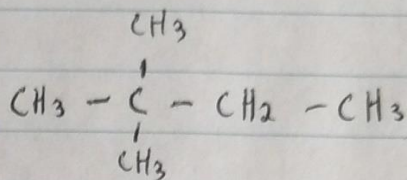 CH3
CH3 - C - CH2 - CH3
CH3